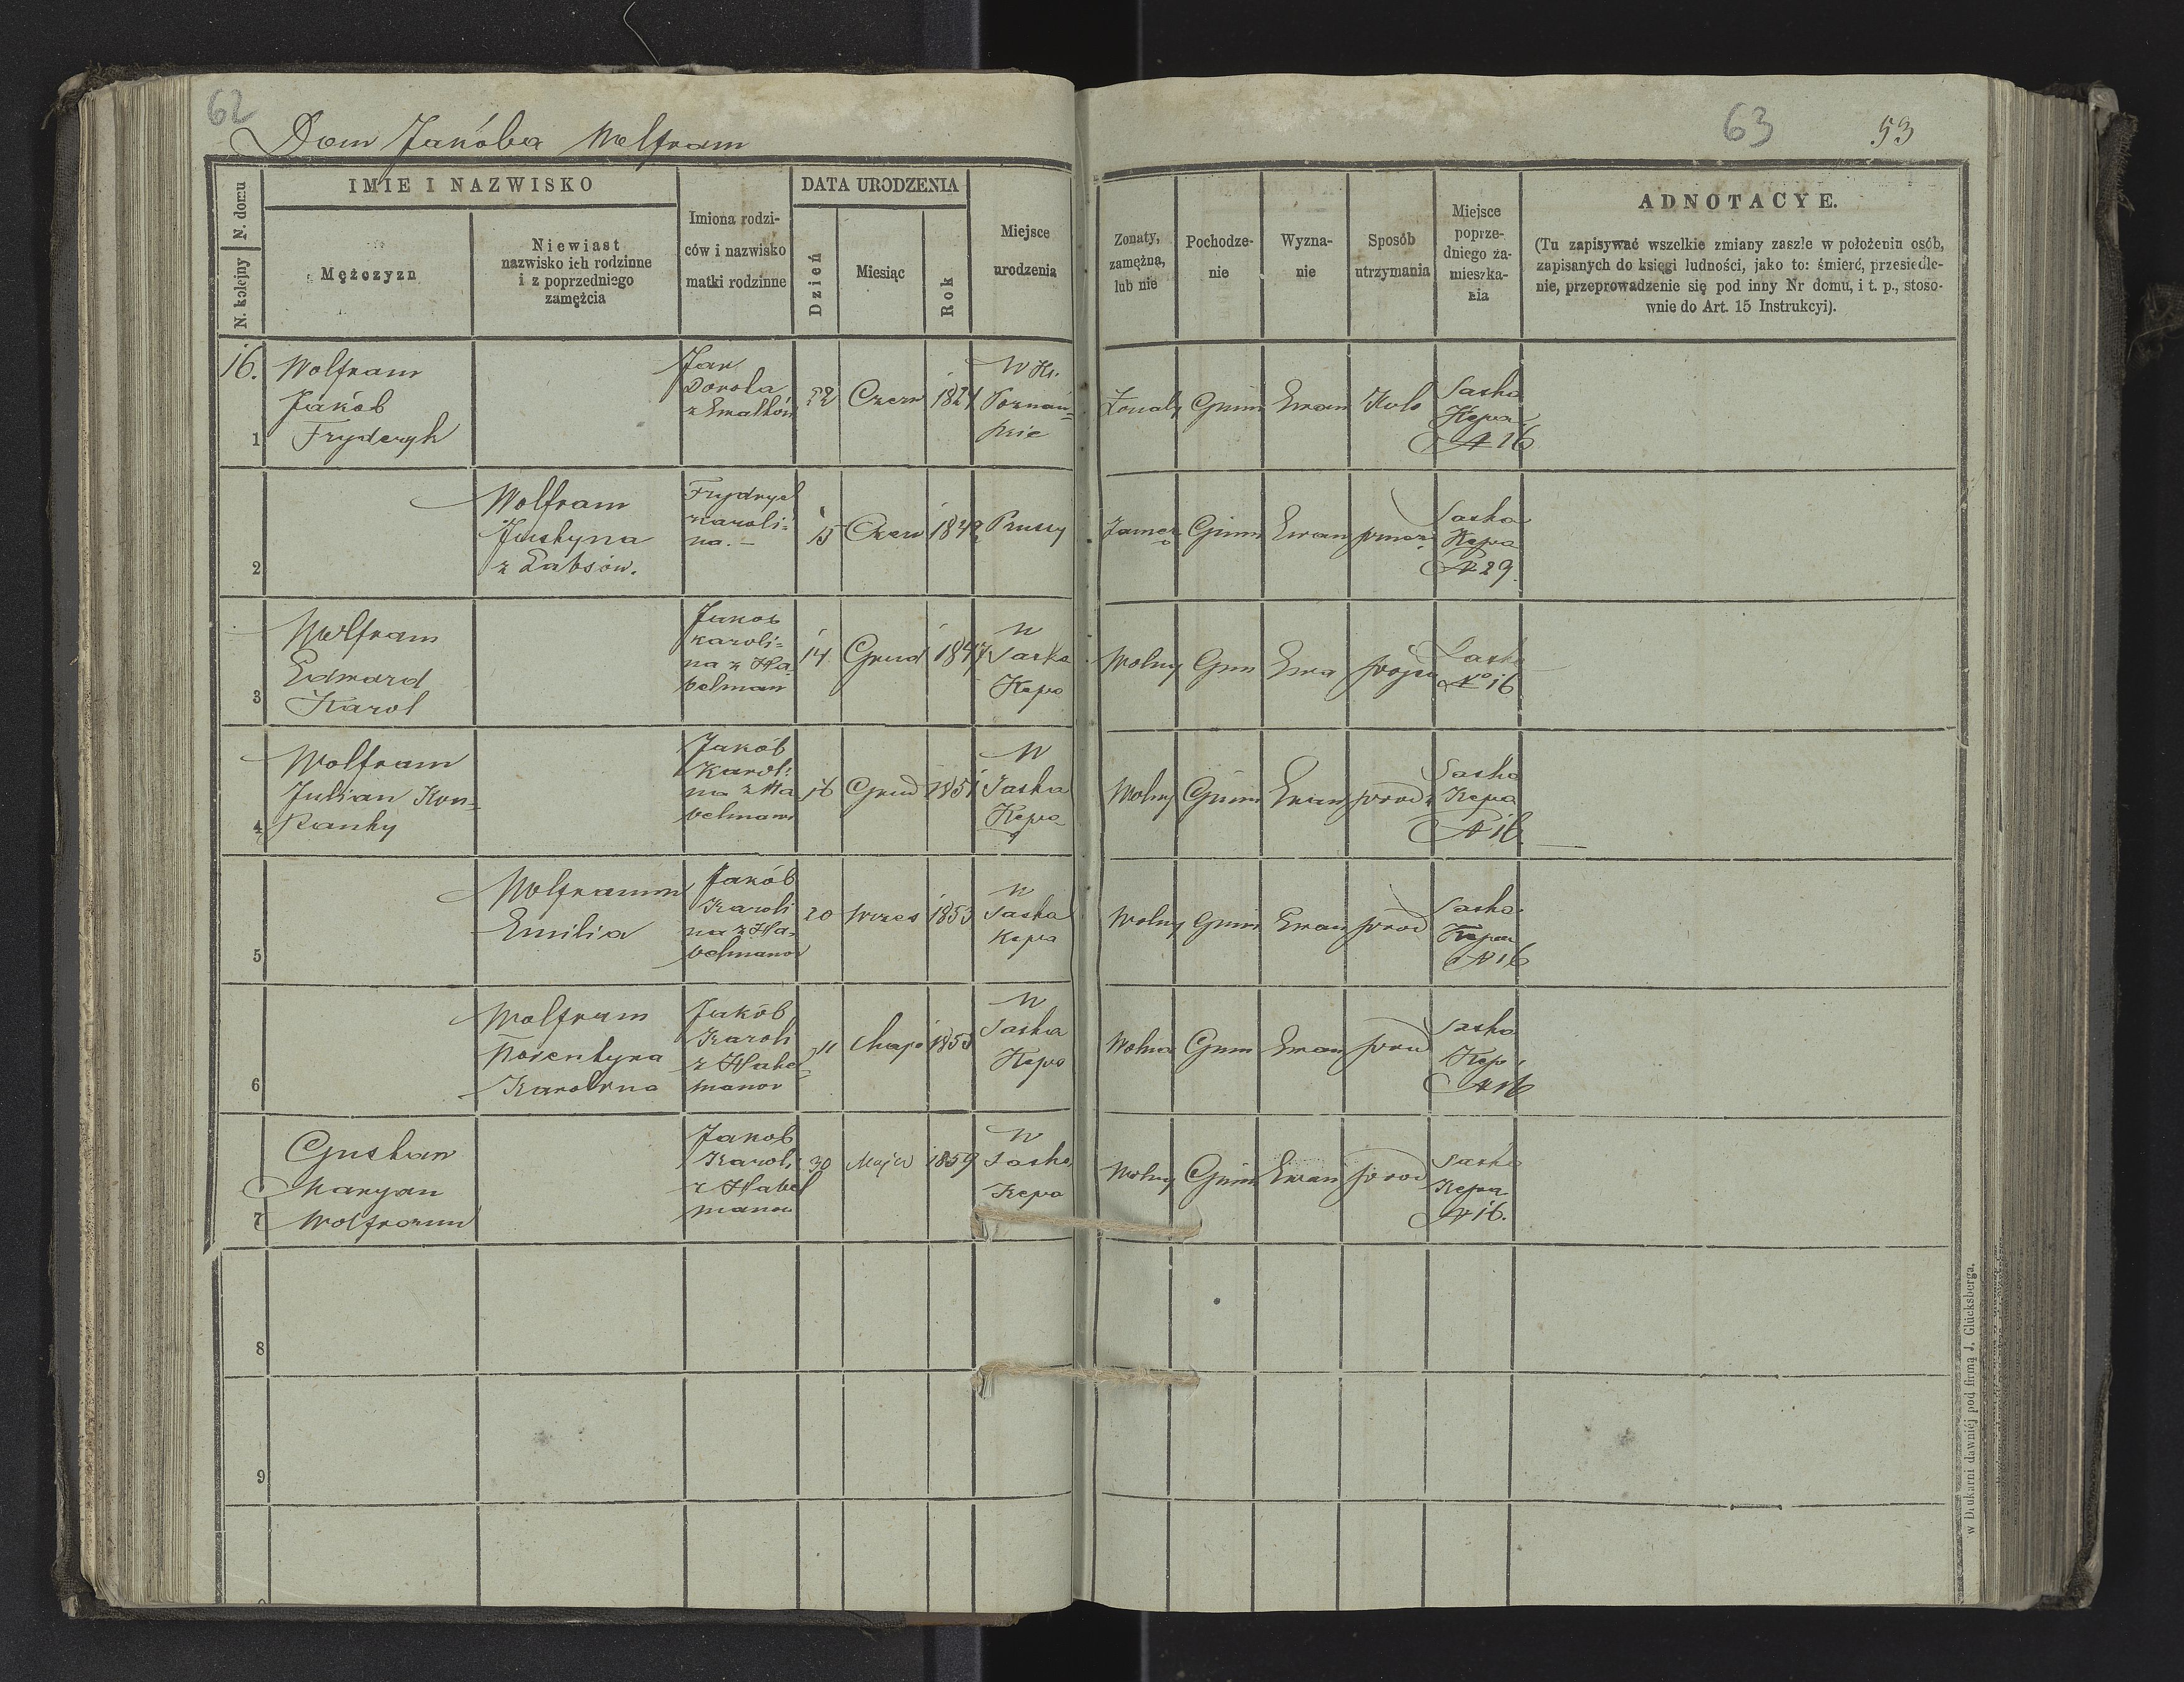 62
63
53
Dom Jakóba Wolfram
N. domu
N. kolejny
IMIE I NAZWISKO
Mężczyzn
Niewiast
nazwisko ich rodzinne
i z poprzedniego
zamężcia
Imiona rodzi-
ców i nazwisko
matki rodzinne
DATA URODZENIA
Dzień
Miesiąc
Rok
Miejsce
urodzenia
Zonaty,
zamężna,
lub nie
Pochodze-
nie
Wyzna-
nie
Sposób
utrzymania
Miejsce
poprze-
dniego za-
mieszka-
nia
ADNOTACYE.
(Tu zapisywać wszelkie zmiany zaszłe w położeniu osób,
zapisanych do księgi ludności, jako to: śmierć, przesiedle-
nie, przeprowadzenie się pod inny Nr domu, i t. p., stoso-
wnie do Art. 15 Instrukcyi).
16.
1
Wolfram
Jakób
Fryderyk
Jan
Dorota
22
Czerw
1821
W Kr.
Poznań=
skie
Żonaty
Gmin
Ewan
Kolo
Saska
Kępa
N 16
2
Wolfram
Justyna
z Labsów.
Frydryel
Karoli=
na. —
15
Czerw
1842
Prussy
Zamęż
Gmin
Ewan
Saska
Kępa
N 29.
3
Wolfram
Edward
Karol
Jakob
Karoli=
na z Ha
belman
14
Grud
1847
w
Saska
Kępa
Wolny
Gmin
Ewa
Saska
No 16
4
Wolfram
Julian Kon=
stanty
Jakób
Karoli
na z Ha
belmanow
16
Grud
1851
W
Saska
Kępa
Wolny
Gmin
Ewan
Saska
Kępa
N 16
5
Wolframm
Emilia
Jakób
Karoli
na z Ha-
belmanow
20
Wrzes
1853
w
Saska
Kępa
Wolny
Gmin
Ewan
Saska
Kępa
N 16
6
Wolfram
Karolina
Jakób
Karoli
z Habel
manow
1855
W
Saska
Kępa
Wolna
Gmin
Ewan
Saska
Kęp
N 16
7
Gustaw
Maryan
Wolfram
Jakob
Karoli
z Habel
manow
30
Maja
1859
W
Saska
Kępa
Wolny
Gmin
Ewan
Saska
Kępa
N 16.
8
9
w Drukarni dawniéj pod firmą J. Glücksberga.